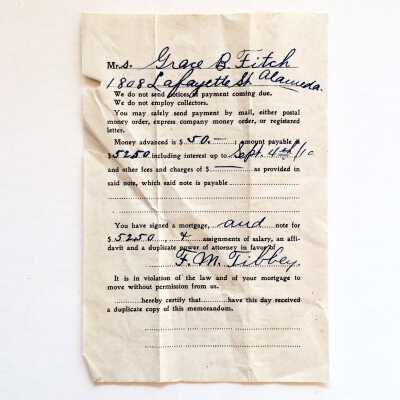 Mrs. Grace B. Fitch
1808 Lafayette St. Alameda.
We do not send notices of payment coming due.
We do not employ collectors.
You may safely send payment by mail, either postal
money order, express company money order, or registered
letter.
Money advanced is $ 50.— ; amount payable
$ 52 50 including interest up to Sept. 4th/10
and other fees and charges of $ — as provided in
said note, which said note is payable
You have signed a mortgage, and note for
$ 52.50, 4 assignments of salary, an affi-
davit and a duplicate power of attorney in favor of
F. M. Tibbey.
It is in violation of the law and of your mortgage to
move without permission from us.
hereby certify that have this day received
a duplicate copy of this memorandum.